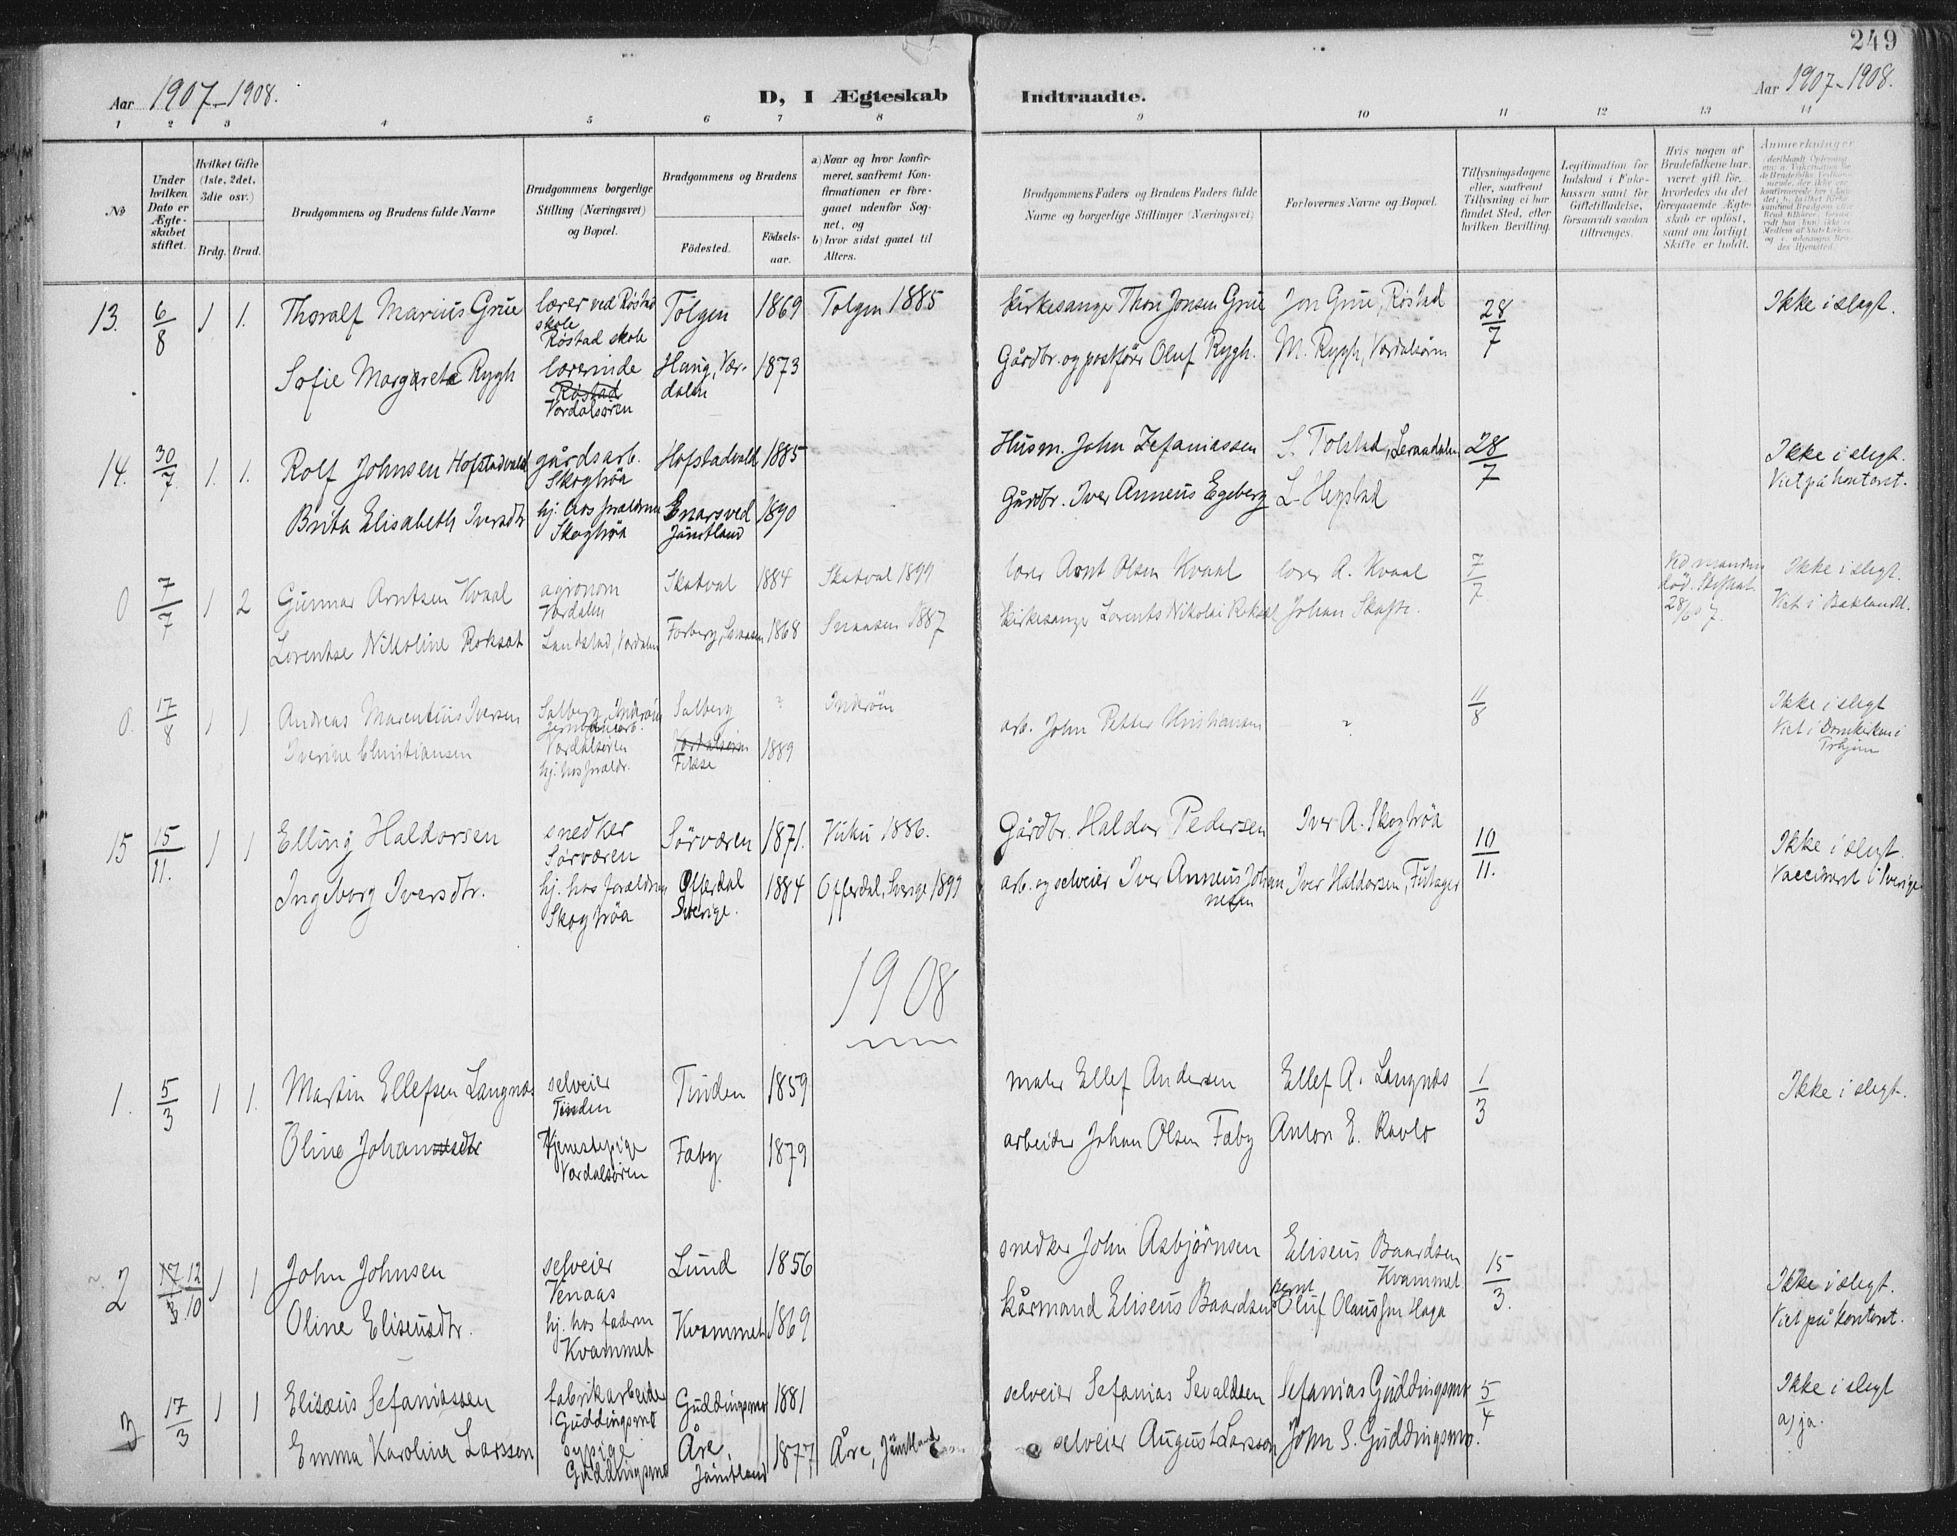 249
Aar 1907-1908.
D, I Ægteskab Indtraadte.
Aar 1907-1908.
1 2 3 4 5 6 7 8 9 10 11 12 13 14
№
Under hvilken Dato er Ægteskabet stiftet.
Hvilket Gifte (1ste, 2det, 3die osv.)
Brdg. Brud.
Brudgommens og Brudens fulde Navne
Brudgommens borgerlige Stilling (Næringsvei) og Bopæl.
Brudgommens og Brudens
Fødested.
Fødselsaar.
a) Naar og hvor konfirmeret, saafremt Konfirmationen er foregaaet udenfor Sognet, og
b) hvor sidst gaaet til Alters.
Brudgommens Faders og Brudens Faders fulde Navne og borgerlige Stillinger (Næringsvei)
Forlovernes Navne og Bopæl.
Tillysningsdagene eller, saafremt Tillysning ei har fundet Sted, efter hvilken Bevilling.
Legitimation for Indskud i Enkekassen samt for Giftetilladelse, forsaavidt saadan tiltrænges.
Hvis nogen af Brudefolkene har været gift før, hvorledes da det foregaaende Ægteskab er opløst, samt om lovligt Skifte er holdt.
Anmerkninger
13. 6/8 1 1. Thoralf Marius Grue lærer ved Røstad skole Røstad skole Tolgen 1869 Tolgen 1885 Kirkesanger Thor Jonsen Grue Jon Grue, Røstad 28/7 Ikke i slegt.
Sofie Margarete Rygh lærerinde Røstad Værdalsøren Haug, Værdalen 1873 Gårdbr. og poståbner Oluf Rygh. M. Rygh, Værdalsøren
14. 30/7 1. 1. Rolf Johnsen Hofstadvald gårdsarb. Skogtrøa Hofstadvald 1885 Husm. John Zefaniassen S. Tolstad, Leraadalen 28/7 Ikke i slegt. Viet på kontoret.
Brita Elisabeth Iversdtr hj. hos forældrene Skogtrøa Enarsved Jämtland 1890 Gårdbr. Iver Anneus Egeberg L. Hegstad
0 7/7 1 2 Gunnar Arntsen Kvaal agronom Værdalen Skatval 1884 Skatval 1899 lærer Arnt Olsen Kvaal lærer A. Kvaal 7/7 Ved mandens død. Skifteat. 28/6 07. Ikke i slegt. Viet i Baklandet.
Lorentse Nikoline Roksæt Landstad, Værdalen Forberg, Snaasen 1868 Snaasen 1887 Kirkesanger Lorents Nikolai Roksæt Johan Skafte.
0. 17/8 1 1 Andreas Marentius Iversen Salberg, Inderøen Salberg ? Inderøen 11/8 Ikke i slegt Viet i Domkirken i Trhjem
Iverine Christiansen Værdalsøren hj. hos foræld. Værdalsøren 1889 arb. John Petter Christiansen ?
15 15/11. 1 1 Elling Haldorsen snedker Sørværen Sörværen 1871. Vuku 1886. Gårdbr. Haldor Pedersen Iver A. Skogtrøa 10/11. Ikke i slegt. Vaccineret i Sverige
Ingeborg Iversdtr. hj. hos forældrene Skogtrøa Offerdal Sverige. 1884 Offerdal, Sverige 1899 arb. og selveier Iver Anneus Johannesen Iver Haldorsen,
1908
1. 5/3 1 1. Martin Ellefsen Langnæs selveier Tinden Tinden 1859 maler Ellef Andersen Ellef A. Langnæs 1/3 Ikke i slegt.
Oline Johansdtr Tjenestepige Værdalsøren Faby 1879 arbeider Johan Olsen Faby Anton E. Ravlo
2 17/3 12/10 1 1 John Johnsen selveier Venaas Lund 1856 snedker John Asbjørnsen Eliseus Baardsen Kvammet 15/3. Ikke i slegt. Viet på kontoret.
Oline Eliseusdtr. hj. hos faderen Kvammet Kvammet 1869 Kårmand Eliseus Baardsen Bernt Oluf Olaussen Haga
3 17/3 1 1 Elisæus Sefaniassen fabrikarbeider Guddingsmo Guddingsmo 1881 selveier Sefanias Sevaldsen Sefanias Guddingsmo 5/4 Ikke i slegt a) ja.
Emma Karolina Larsson sypige Guddingsmo Åre, Jämtland 1877 Åre, Jämtland selveier August Larsson John S. Guddingsmo.